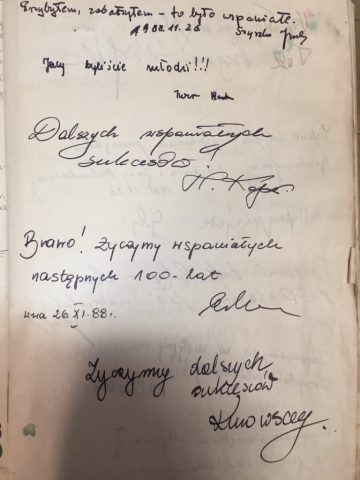 Przybyłem, zobaczyłem - to było wspaniałe.
1988.11.26
Jacy byliście młodzi!!!
Dalszych wspaniałych
sukcesów
Brawo! Życzymy wspaniałych
następnych 100-lat
dnia 26.XI.88r.
Życzymy dalszych
sukcesów